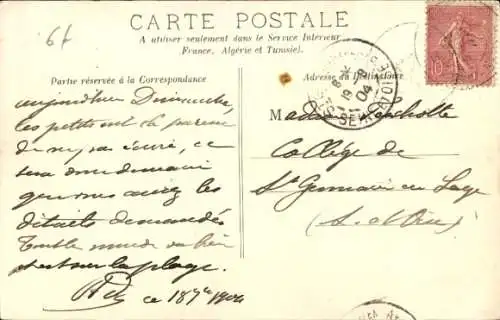 6f
CARTE POSTALE
A utiliser seulement dans le Service Intérieur
France, Algérie et Tunisie).
Partie réservée à la Correspondance
Adresse du Destinataire
aujourd'hui Dimanche,
les petits ont la paresse
de ne pas écrire, ce
sera demain
que vous aurez les
détails demandés
Tout le monde va bien
et est sur la plage.
ce 18 7bre 1904
Ma
Collège de
St Germain en Laye
(S. et Oise)
10
04
SEINE